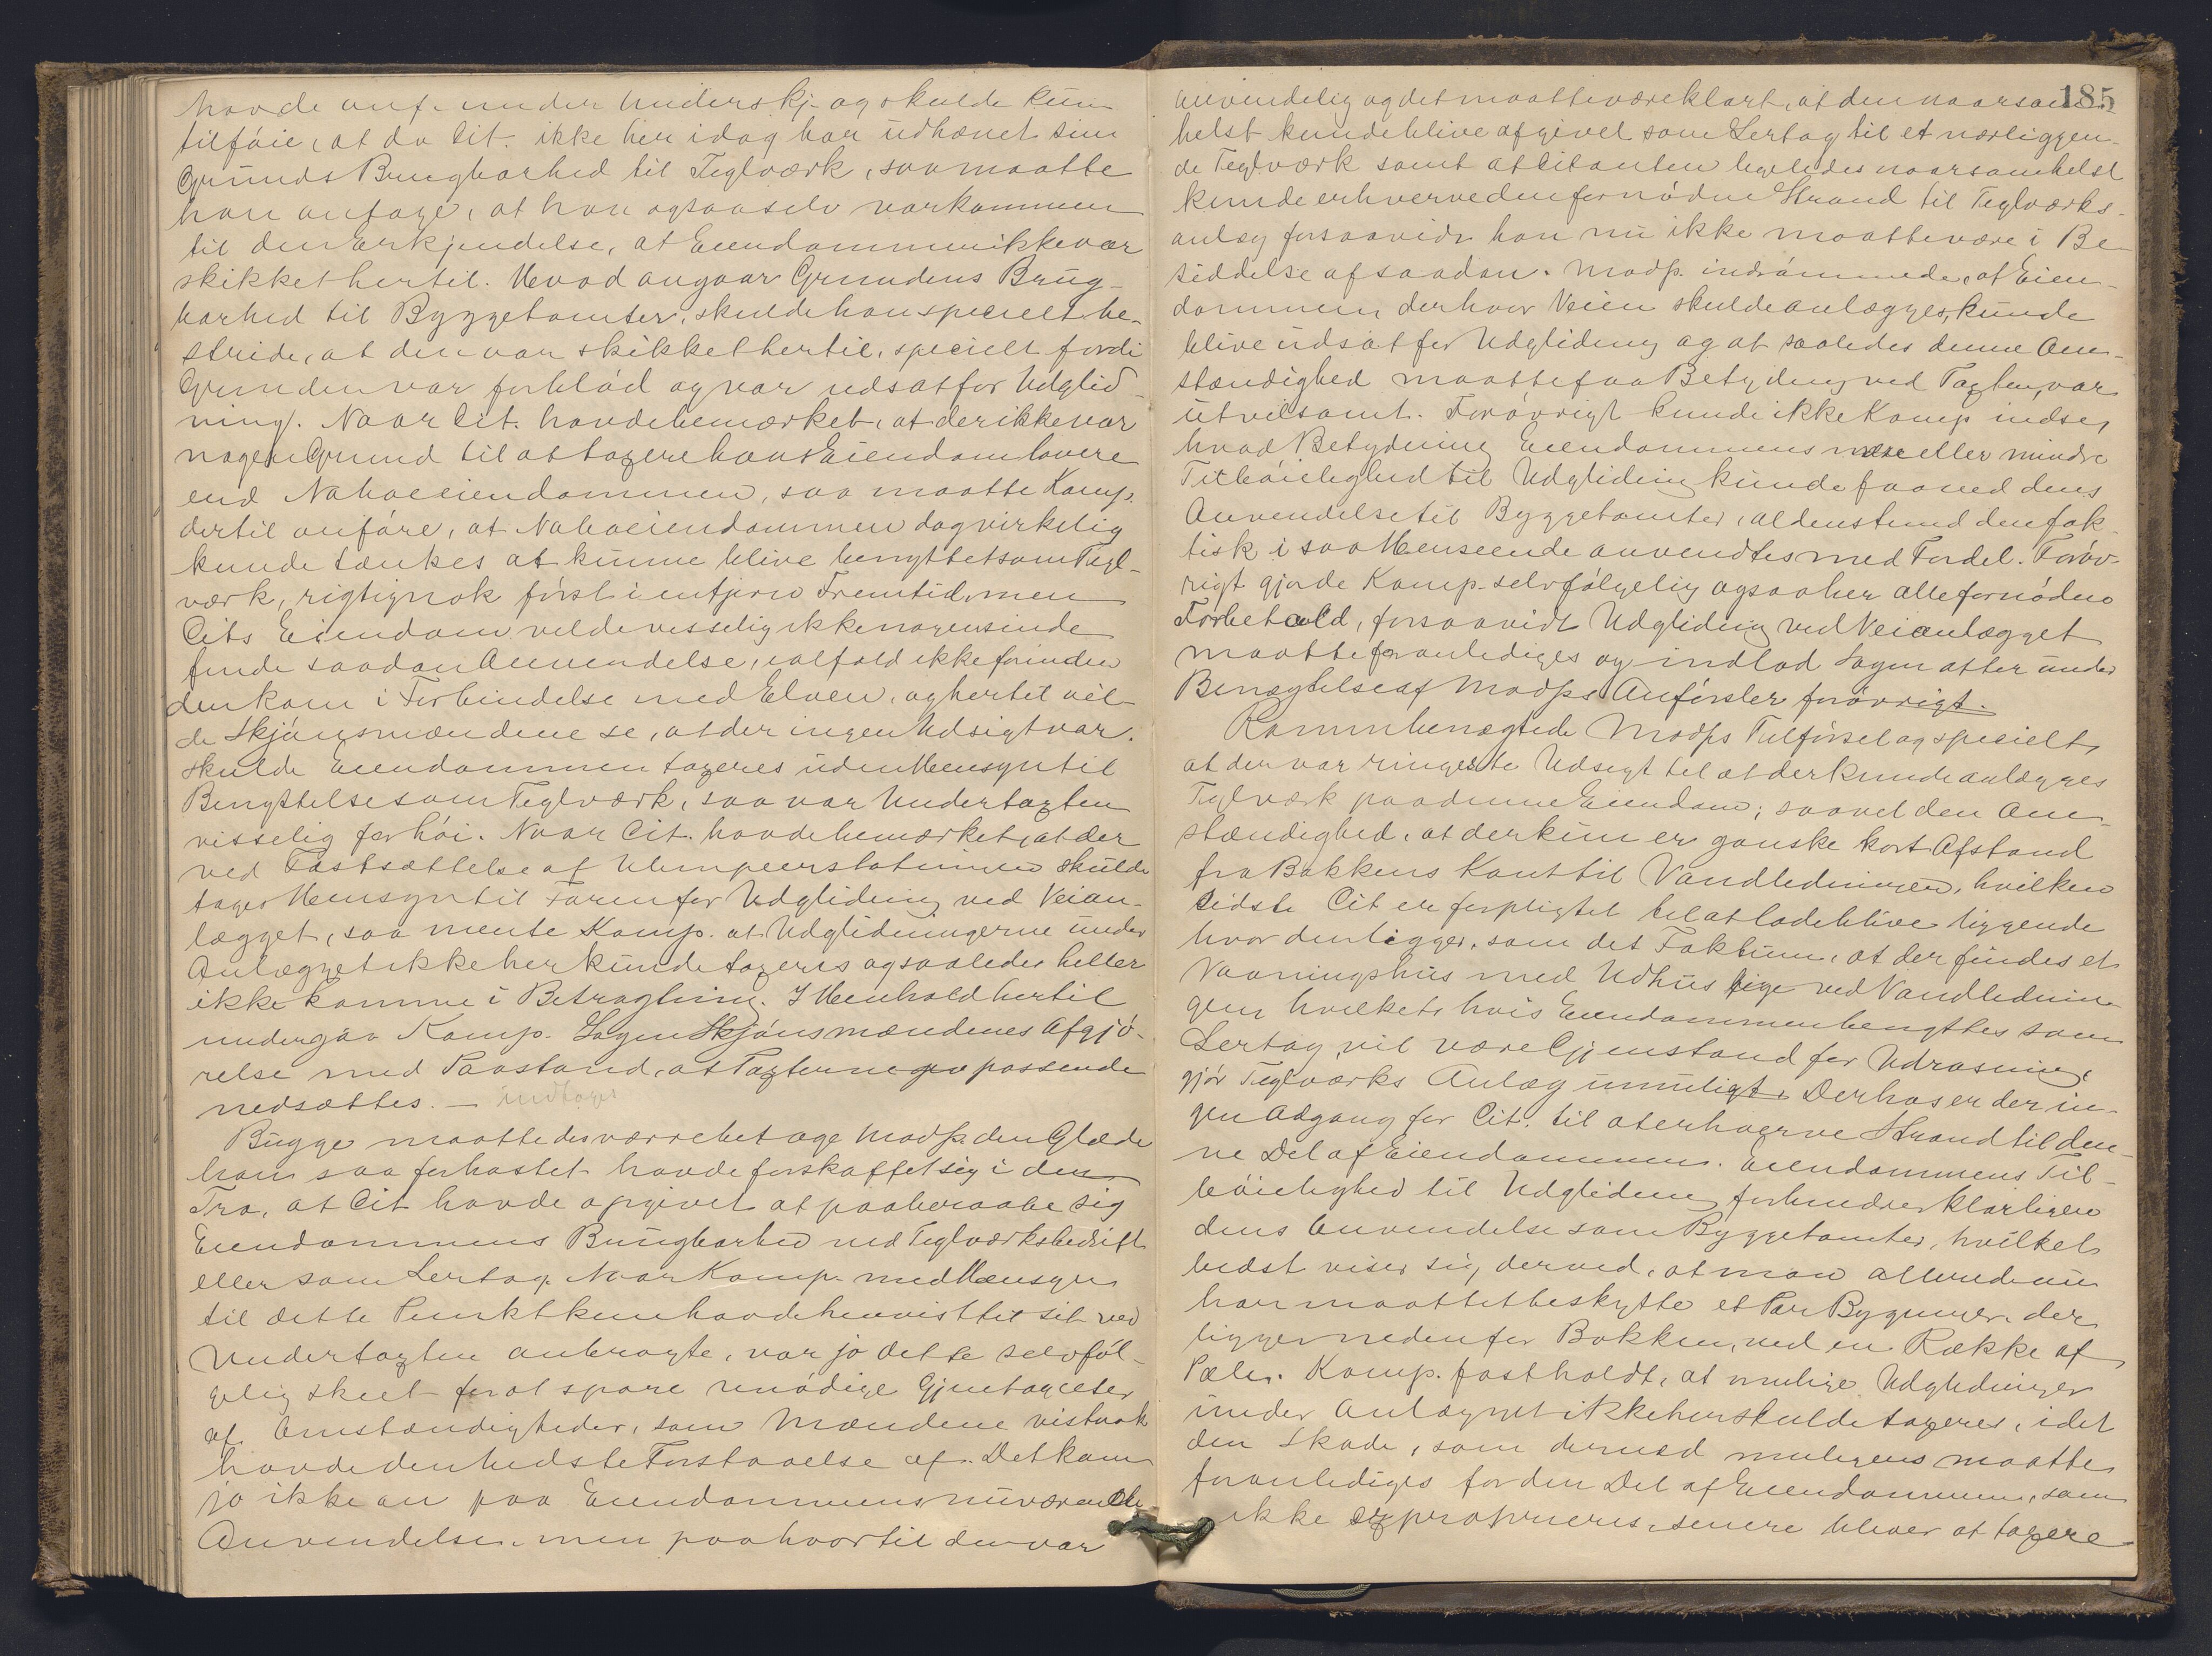 havde anf. under Underskj. og skulde kun
tilføie, at da Cit. ikke her idag har udhævet sin
Grunds Brugbarhed til Teglværk, saa maatte
han antage, at han ogsaa selv var kommen
til den Erkjendelse, at Eiendommen ikke var
skikket hertil. Hvad angaar Grundens Brug-
barhed til Byggetomter, skulde han specielt be-
stride, at den var skikket hertil, specielt fordi
Grunden var for blød og var udsat for Udglid-
ning. Naar Cit. havde bemærket, at der ikke var
nogen Grund til at taxere hans Eiendom lavere
end Naboeiendommen, saa maatte Komp.
dertil anføre, at Naboeiendommen dog virkelig
kunde tænkes at kunne blive benyttet som Tegl-
værk, rigtignok først i en fjern Fremtid, men
Cits Eiendom vilde visselig ikke nogensinde
finde saadan Anvendelse, ialfald ikke forinden
den kom i Forbindelse med Elven, og hertil vil-
de Skjønsmændene se, at der ingen Udsigt var.
Skulde Eiendommen taxeres uden Hensyn til
Benyttelse som Teglværk, saa var Undertaxten
visselig for høi. Naar Cit. havde bemærket, at der
ved Fastsættelse af Ulempeerstatningen skulde
tages Hensyn til Faren for Udglidning ved Veian-
lægget, saa mente Komp. at Udglidningerne under
Anlægget ikke her kunde taxeres og saaledes heller
ikke komme i Betragtning. I Henhold hertil
undergav Komp. Sagen Skjønsmændenes Afgjø-
relse med Paastand, at Taxterne passende
nedsættes. — indtages
Bugge maatte desværre betage Modp. den Glæde
han saa forhastet havde forskaffet sig i den
Tro, at Cit havde opgivet at paaberaabe sig
Eiendommens Brugbarhed ved Teglværksbedrift
eller som Lertag. Naar Komp. med Hensyn
til dette Punkt kun havde henvist til sit ved
Undertaxten anbragte, var jo dette selvføl-
gelig skeet for at spare unødige Gjentagelser
af Omstændigheder, som Mændene vistnok
havde den bedste Forstaaelse af. Det kom
jo ikke an paa Eiendommens nuværende
Anvendelse, men paa hvortil den var
185
anvendelig og det maatte være klart, at den naarsom-
helst kunde blive afgivet som Lertag til et nærliggen-
de Teglværk samt at Citanten ligeledes naarsomhelst
kunde erhverve den fornødne Strand til Teglværks-
anlæg forsaavidt han nu ikke maatte være i Be-
siddelse af saadan. Modp. indrømmede, at Eien-
dommen der hvor Veien skulde anlægges, kunde
blive udsat for Udglidning og at saaledes denne Om-
stændighed maatte faa Betydning ved Taxten, var
utvilsomt. Forøvrigt kunde ikke Komp indse,
hvad Betydning Eiendommens mere eller mindre
Tilbøielighed til Udglidning kunde faa ved dens
Anvendelse til Byggetomter, aldenstund den fak-
tisk i saa Henseende anvendtes med Fordel. Forøv-
rigt gjorde Komp. selvfølgelig ogsaa her alle fornødne
Forbehold, forsaavidt Udglidning ved Veianlægget
maatte foranlediges og indlod Sagen atter under
Benægtelse af Modps Anførsler forøvrigt.
Ramm benægtede Modps Tilførsel og specielt,
at der var ringeste Udsigt til at der kunde anlægges
Teglværk paa denne Eiendom; saavel den Om-
stændighed, at der kun er ganske kort Afstand
fra Bakkens Kant til Vandledningen, hvilken
sidste Cit er forpligtet til at lade blive liggende
hvor den ligger, som det Faktum, at der findes et
Vaaningshus med Udhus lige ved Vandlednin-
gen hvilket, hvis Eiendommen benyttes som
Lertag, vil være Gjenstand for Udrasning,
gjør Teglværks Anlæg umuligt. Derhos er der in-
gen Adgang for Cit. til at erhverve Strand til den-
ne Del af Eiendommen. Eiendommens Til-
bøielighed til Udglidning forhindrer klarligen
dens Anvendelse som Byggetomter, hvilket
bedst viser sig derved, at man allerede nu
har maattet beskytte et Par Bygninger, der
ligger nedenfor Bakken, ved en Række af
Pæler. Komp. fastholdt, at mulige Udglidninger
under Anlægget ikke her skulde taxeres, idet
den Skade, som derved muligens maatte
foranlediges for den Del af Eiendommen, som
ikke exproprieres, senere bliver at taxere